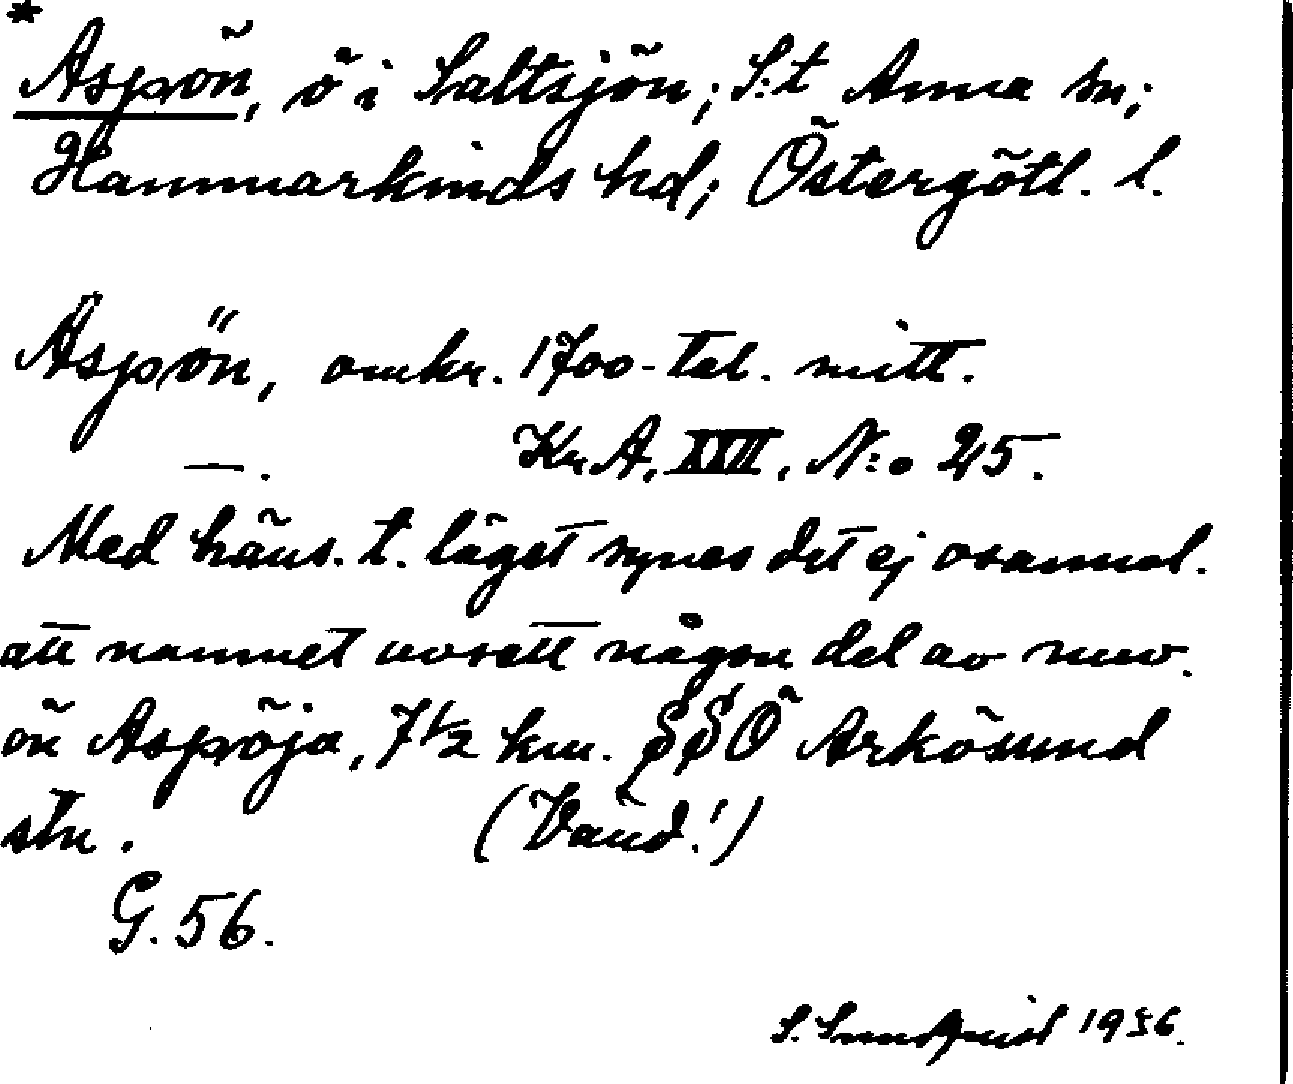 * Aspön, ö i Saltsjön; S:t Anna sn;
Hammarkinds hd; Östergötl. l.
Aspön, omkr. 1700-tal. mitt.
—. Kr. A. XXII, N:o 25.
Med häns. t. läget synes det ej osannol.
att namnet avsett någon del av nuv.
ön Aspöja, 7 1/2 km. SSÖ Arkösund
stn. (Vänd!)
G. 56.
S. Sundquist 1936.